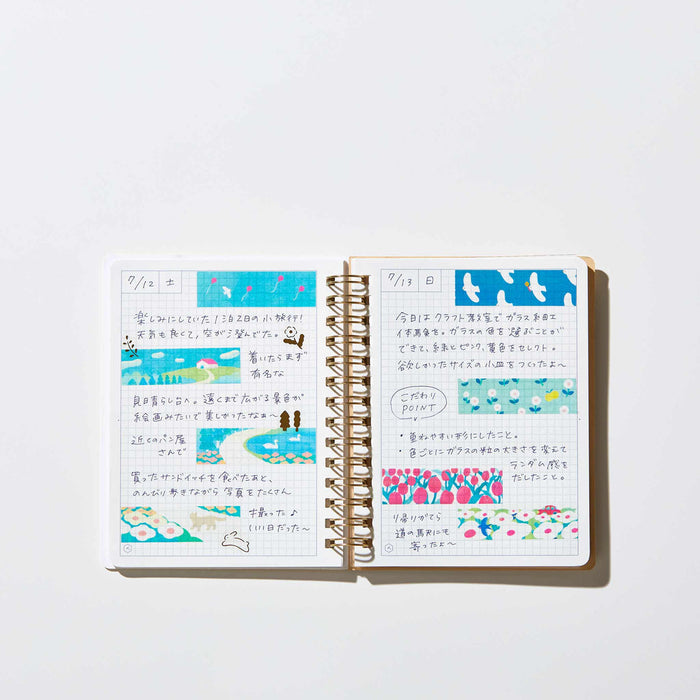 7/12 土
楽しみにしていた1泊2日の小旅行！
天気も良くて、空が澄んでた。
着いたらまず
有名な
見晴らし台へ。遠くまで広がる景色が
絵画みたいで美しかったなぁ〜
近くのパン屋
さんで
買ったサンドイッチを食べたあと、
のんびり歩きながら写真をたくさん
撮った♪
いい日だった〜
7/13 日
今日はクラフト教室でガラス細工
体験を。ガラスの色を選ぶことが
できて、緑とピンク、黄色をセレクト。
欲しかったサイズの小皿をつくったよ〜
こだわり
POINT
・重ねやすい形にしたこと。
・色ごとにガラスの粒の大きさを変えて
ランダム感を
だしたこと。
帰りがてら
道の駅にも
寄ったよ〜